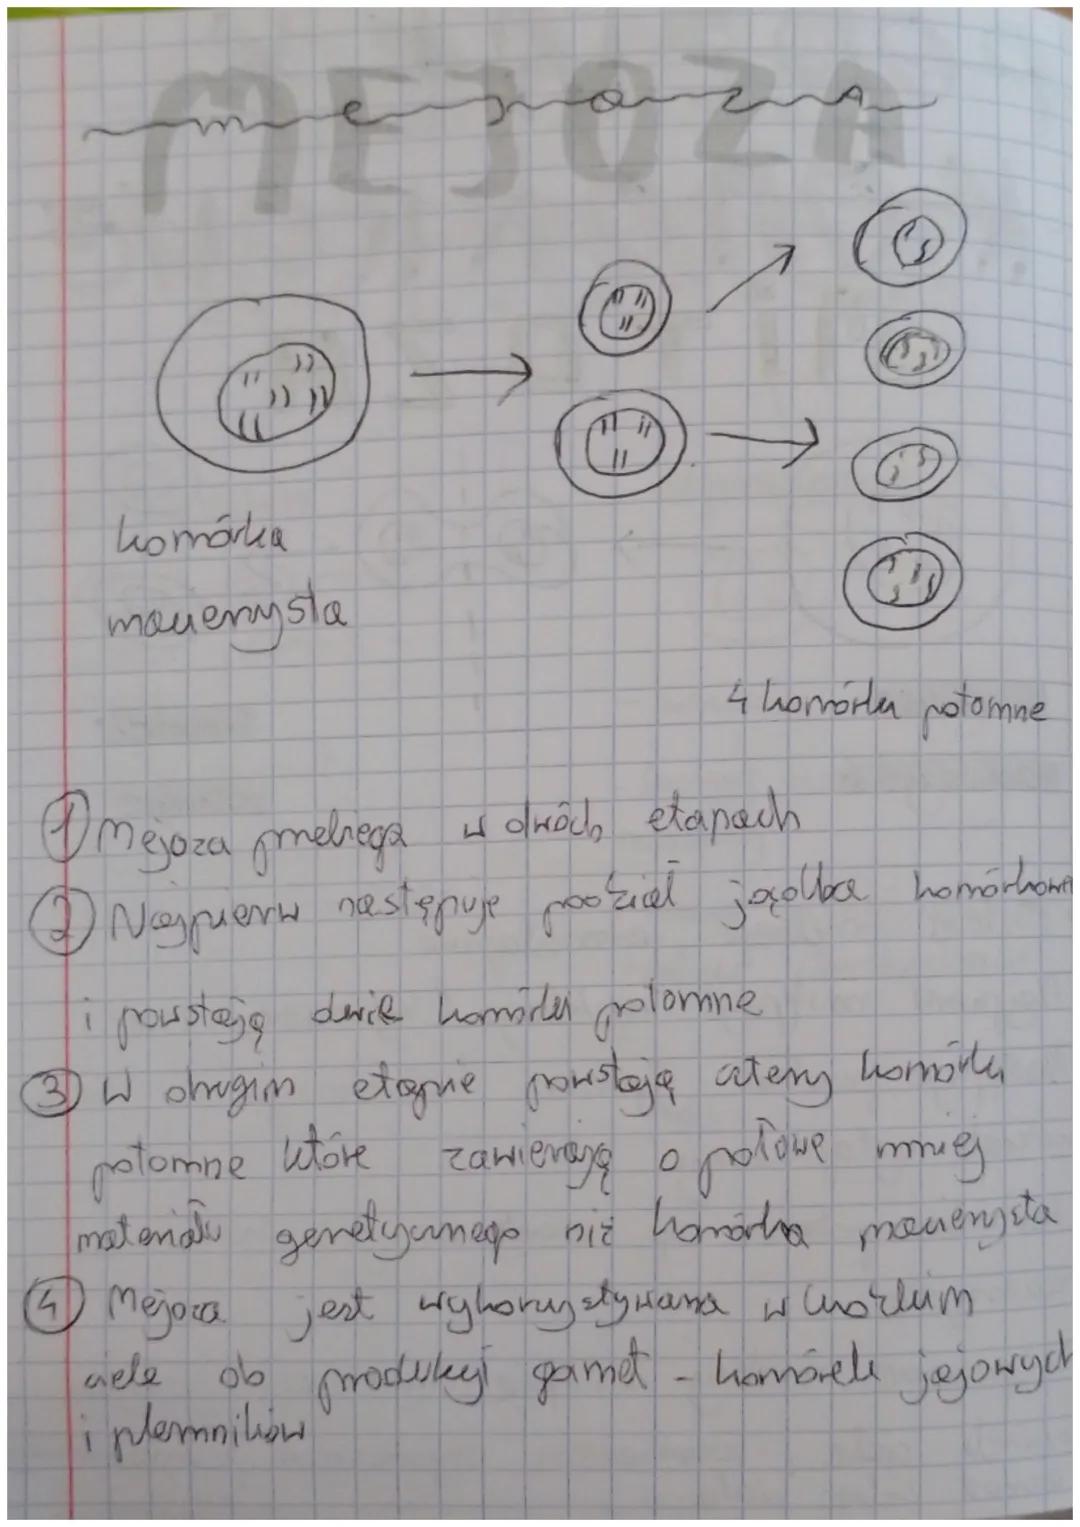 MEJOZA
mejozA
komórka
macierzysta
4 komórki potomne
① Mejoza przebiega w dwóch etapach
② Najpierw następuje podział jądka komórkowe
i powstają dwie komórki potomne
③ W drugim etapie powstają cztery komórki
potomne które zawierają o połowę mniej
materiału genetycznego niż komórka macierzysta
④ Mejoza jest wykorzystywana w ludzkim
ciele do produkcji gamet - komórek jajowych
i plemników